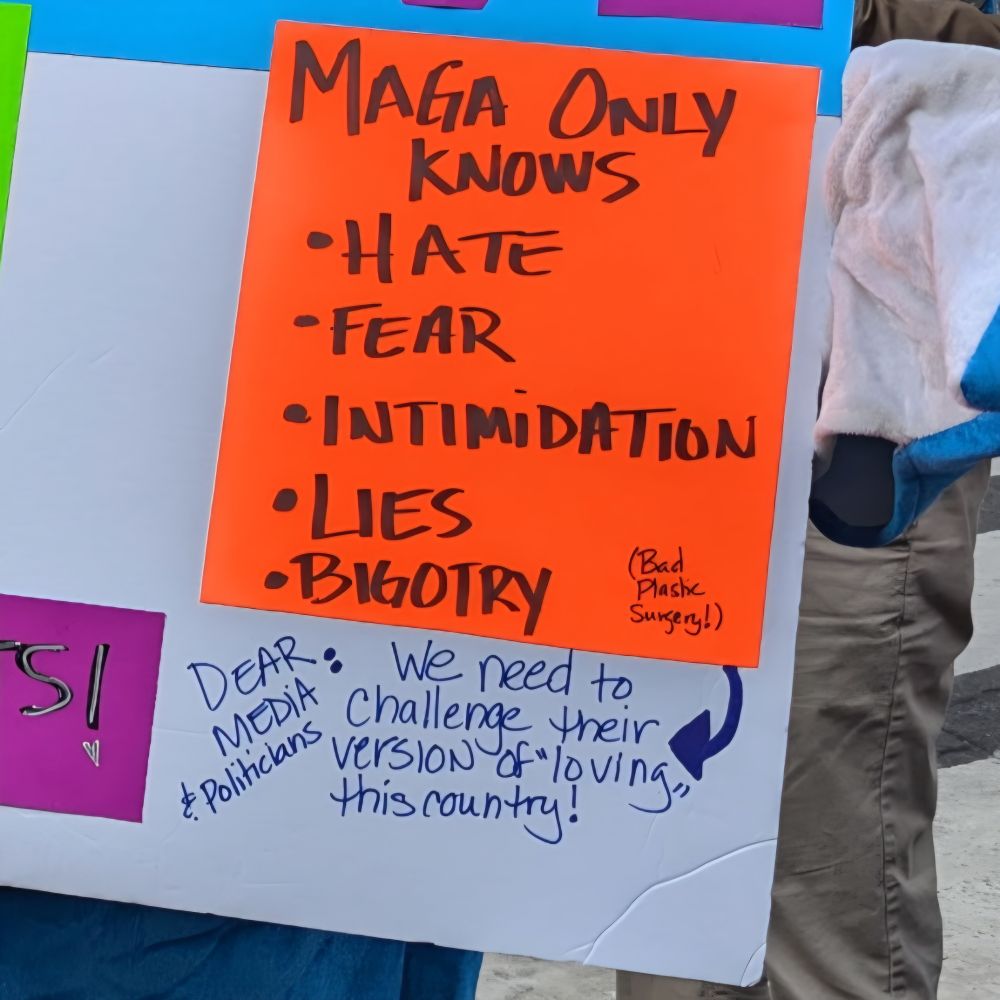 MAGA ONLY
KNOWS
• HATE
• FEAR
• INTIMIDATION
• LIES
• BIGOTRY
(Bad
Plastic
Surgery!)
TS!
DEAR :
MEDIA
& Politicians
We need to
Challenge their
VERSION of "loving"
this country!